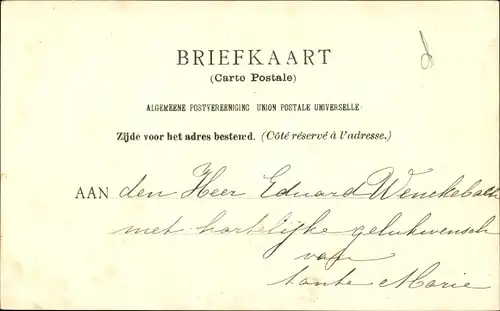 BRIEFKAART
(Carte Postale)
ALGEMEENE POSTVEREENIGING UNION POSTALE UNIVERSELLE
Zijde voor het adres bestemd. (Côté réservé à l'adresse.)
AAN den Heer Eduard Wenckebach
met hartelijke gelukwensch
van
tante Marie